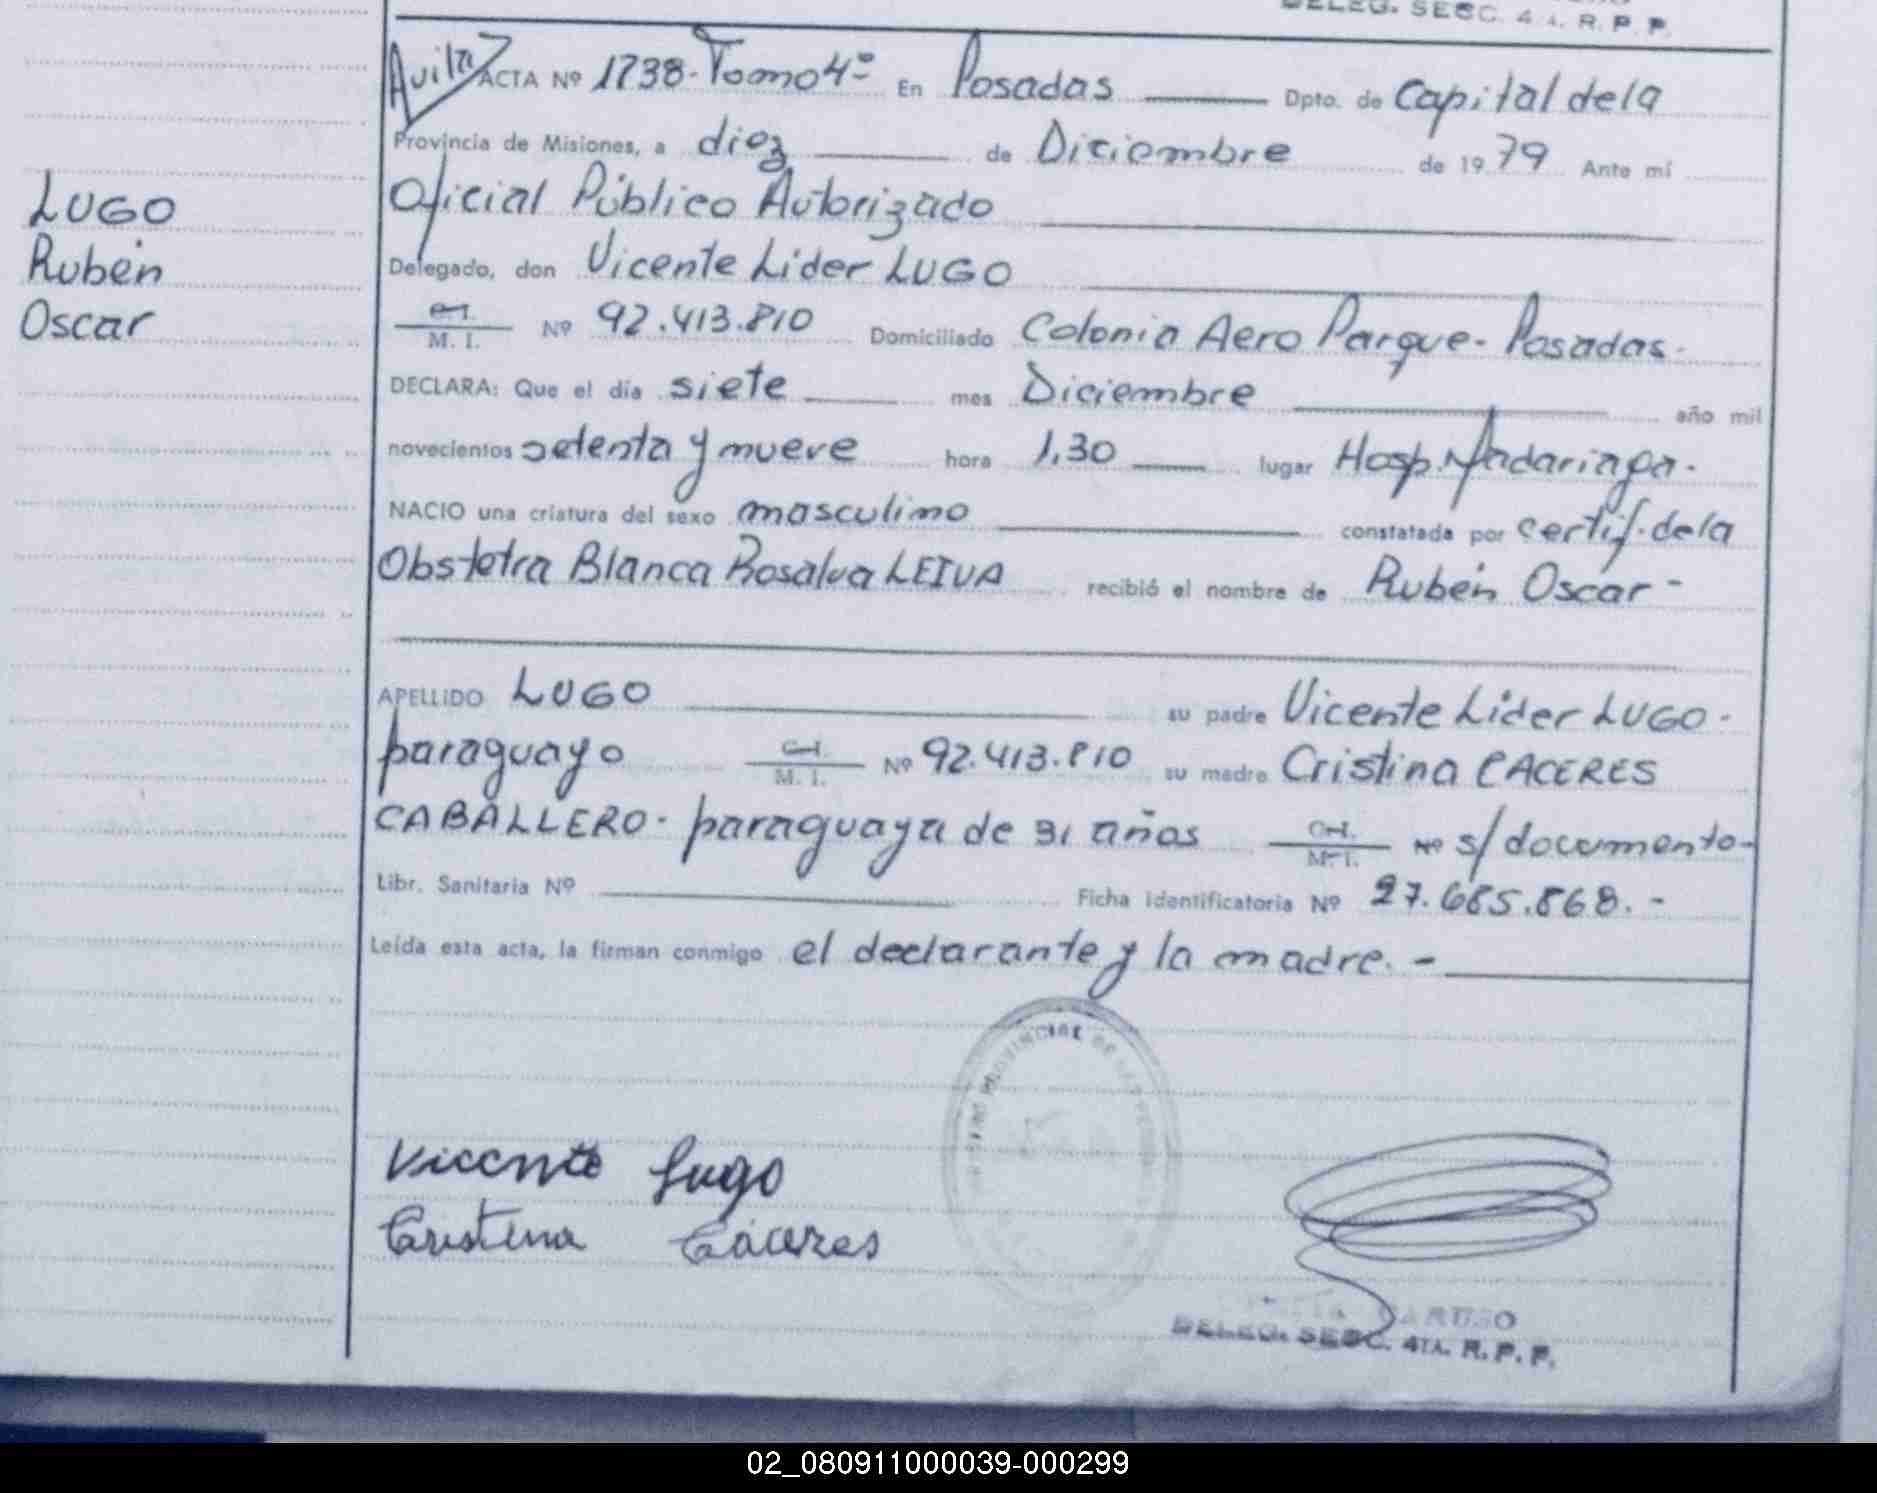 DELEG. SECC. 4 A. R. P. P.
Avila ACTA Nº 1738. Tomo 4º En Posadas Dpto. de Capital de la
Provincia de Misiones, a diez de Diciembre de 1979 Ante mí
Oficial Público Autorizado
LUGO
Rubén
Oscar
Delegado, don Vicente Lider LUGO
C.I. M. I. Nº 92.413.810 Domiciliado Colonia Aero Parque - Posadas -
DECLARA: Que el día siete mes Diciembre año mil
novecientos setenta y nueve hora 1,30 lugar Hosp. Madariaga.
NACIO una criatura del sexo masculino constatada por certif. de la
Obstetra Blanca Rosalva LEIVA recibió el nombre de Rubén Oscar -
APELLIDO LUGO su padre Vicente Lider LUGO -
paraguayo C.I. M. I. Nº 92.413.810 su madre Cristina CACERES
CABALLERO - paraguaya de 31 años C.I. M. I. Nº s/documento -
Libr. Sanitaria Nº Ficha Identificatoria Nº 27.685.868. -
Leída esta acta, la firman conmigo el declarante y la madre. -
PROVINCIAL DE LAS
Vicente Lugo
Cristina Cáceres
CARUSO
DELEG. SECC. 4TA. R. P. P.
02_080911000039-000299